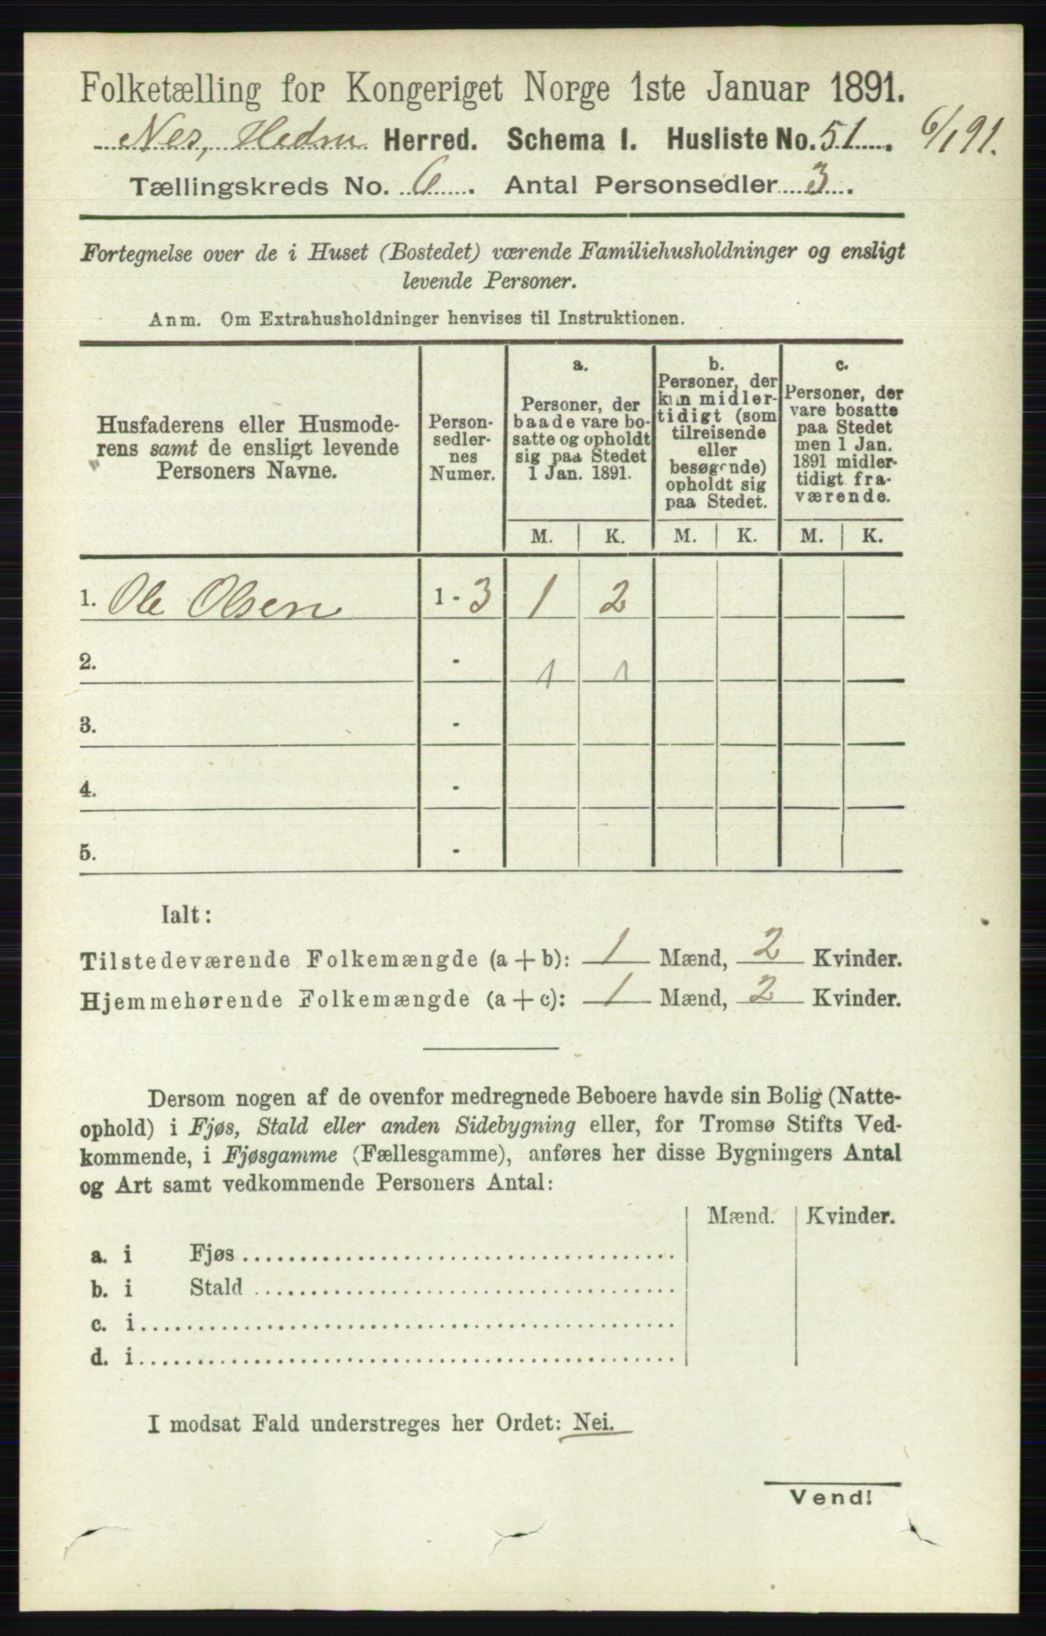 Folketælling for Kongeriget Norge 1ste Januar 1891.
Nes, Hedm Herred. Schema I. Husliste No. 51. 6/1 91.
Tællingskreds No. 6. Antal Personsedler 3.
Fortegnelse over de i Huset (Bostedet) værende Familiehusholdninger og ensligt
levende Personer.
Anm. Om Extrahusholdninger henvises til Instruktionen.
Husfaderens eller Husmode-
rens samt de ensligt levende
Personers Navne.
Person-
sedler-
nes
Numer.
a.
Personer, der
baade vare bo-
satte og opholdt
sig paa Stedet
1 Jan. 1891.
b.
Personer, der
kun midler-
tidigt (som
tilreisende
eller
besøgende)
opholdt sig
paa Stedet.
c.
Personer, der
vare bosatte
paa Stedet
men 1 Jan.
1891 midler-
tidigt fra-
værende.
M. K. M. K. M. K.
1. Ole Olsen 1 - 3 1 2
2. - 1 1
3. -
4. -
5. -
Ialt:
Tilstedeværende Folkemængde (a + b): 1 Mænd, 2 Kvinder.
Hjemmehørende Folkemængde (a + c): 1 Mænd, 2 Kvinder.
Dersom nogen af de ovenfor medregnede Beboere havde sin Bolig (Natte-
ophold) i Fjøs, Stald eller anden Sidebygning eller, for Tromsø Stifts Ved-
kommende, i Fjøsgamme (Fællesgamme), anføres her disse Bygningers Antal
og Art samt vedkommende Personers Antal:
Mænd. Kvinder.
a. i Fjøs
b. i Stald
c. i
d. i
I modsat Fald understreges her Ordet: Nei.
Vend!